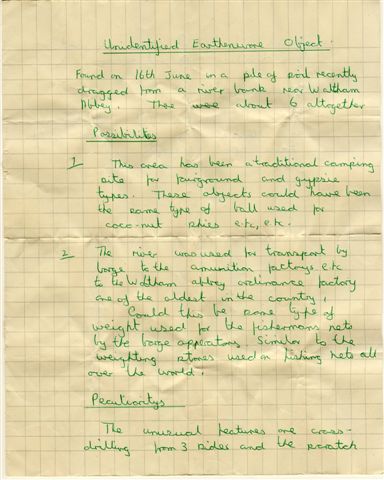 Unidentified Earthenware Object.
Found on 16th June in a pile of soil recently
dragged from a river bank near Waltham
Abbey. There were about 6 altogether
Possibilites
1 This area has been a traditional camping
site for fairground and gypsie
types. These objects could have been
the same type of ball used for
coco-nut shies e.t.c, e.t.c.
2 The river was used for transport by
barge to the ammunition factorys e.t.c
to the Waltham abbey ordinance factory
one of the oldest in the country.
Could this be some type of
weight used for the fishermans nets
by the barge operators. Similar to the
weighting stones used on fishing nets all
over the world.
Peculiaritys
The unusual features are cross-
drilling from 3 sides and the scratch